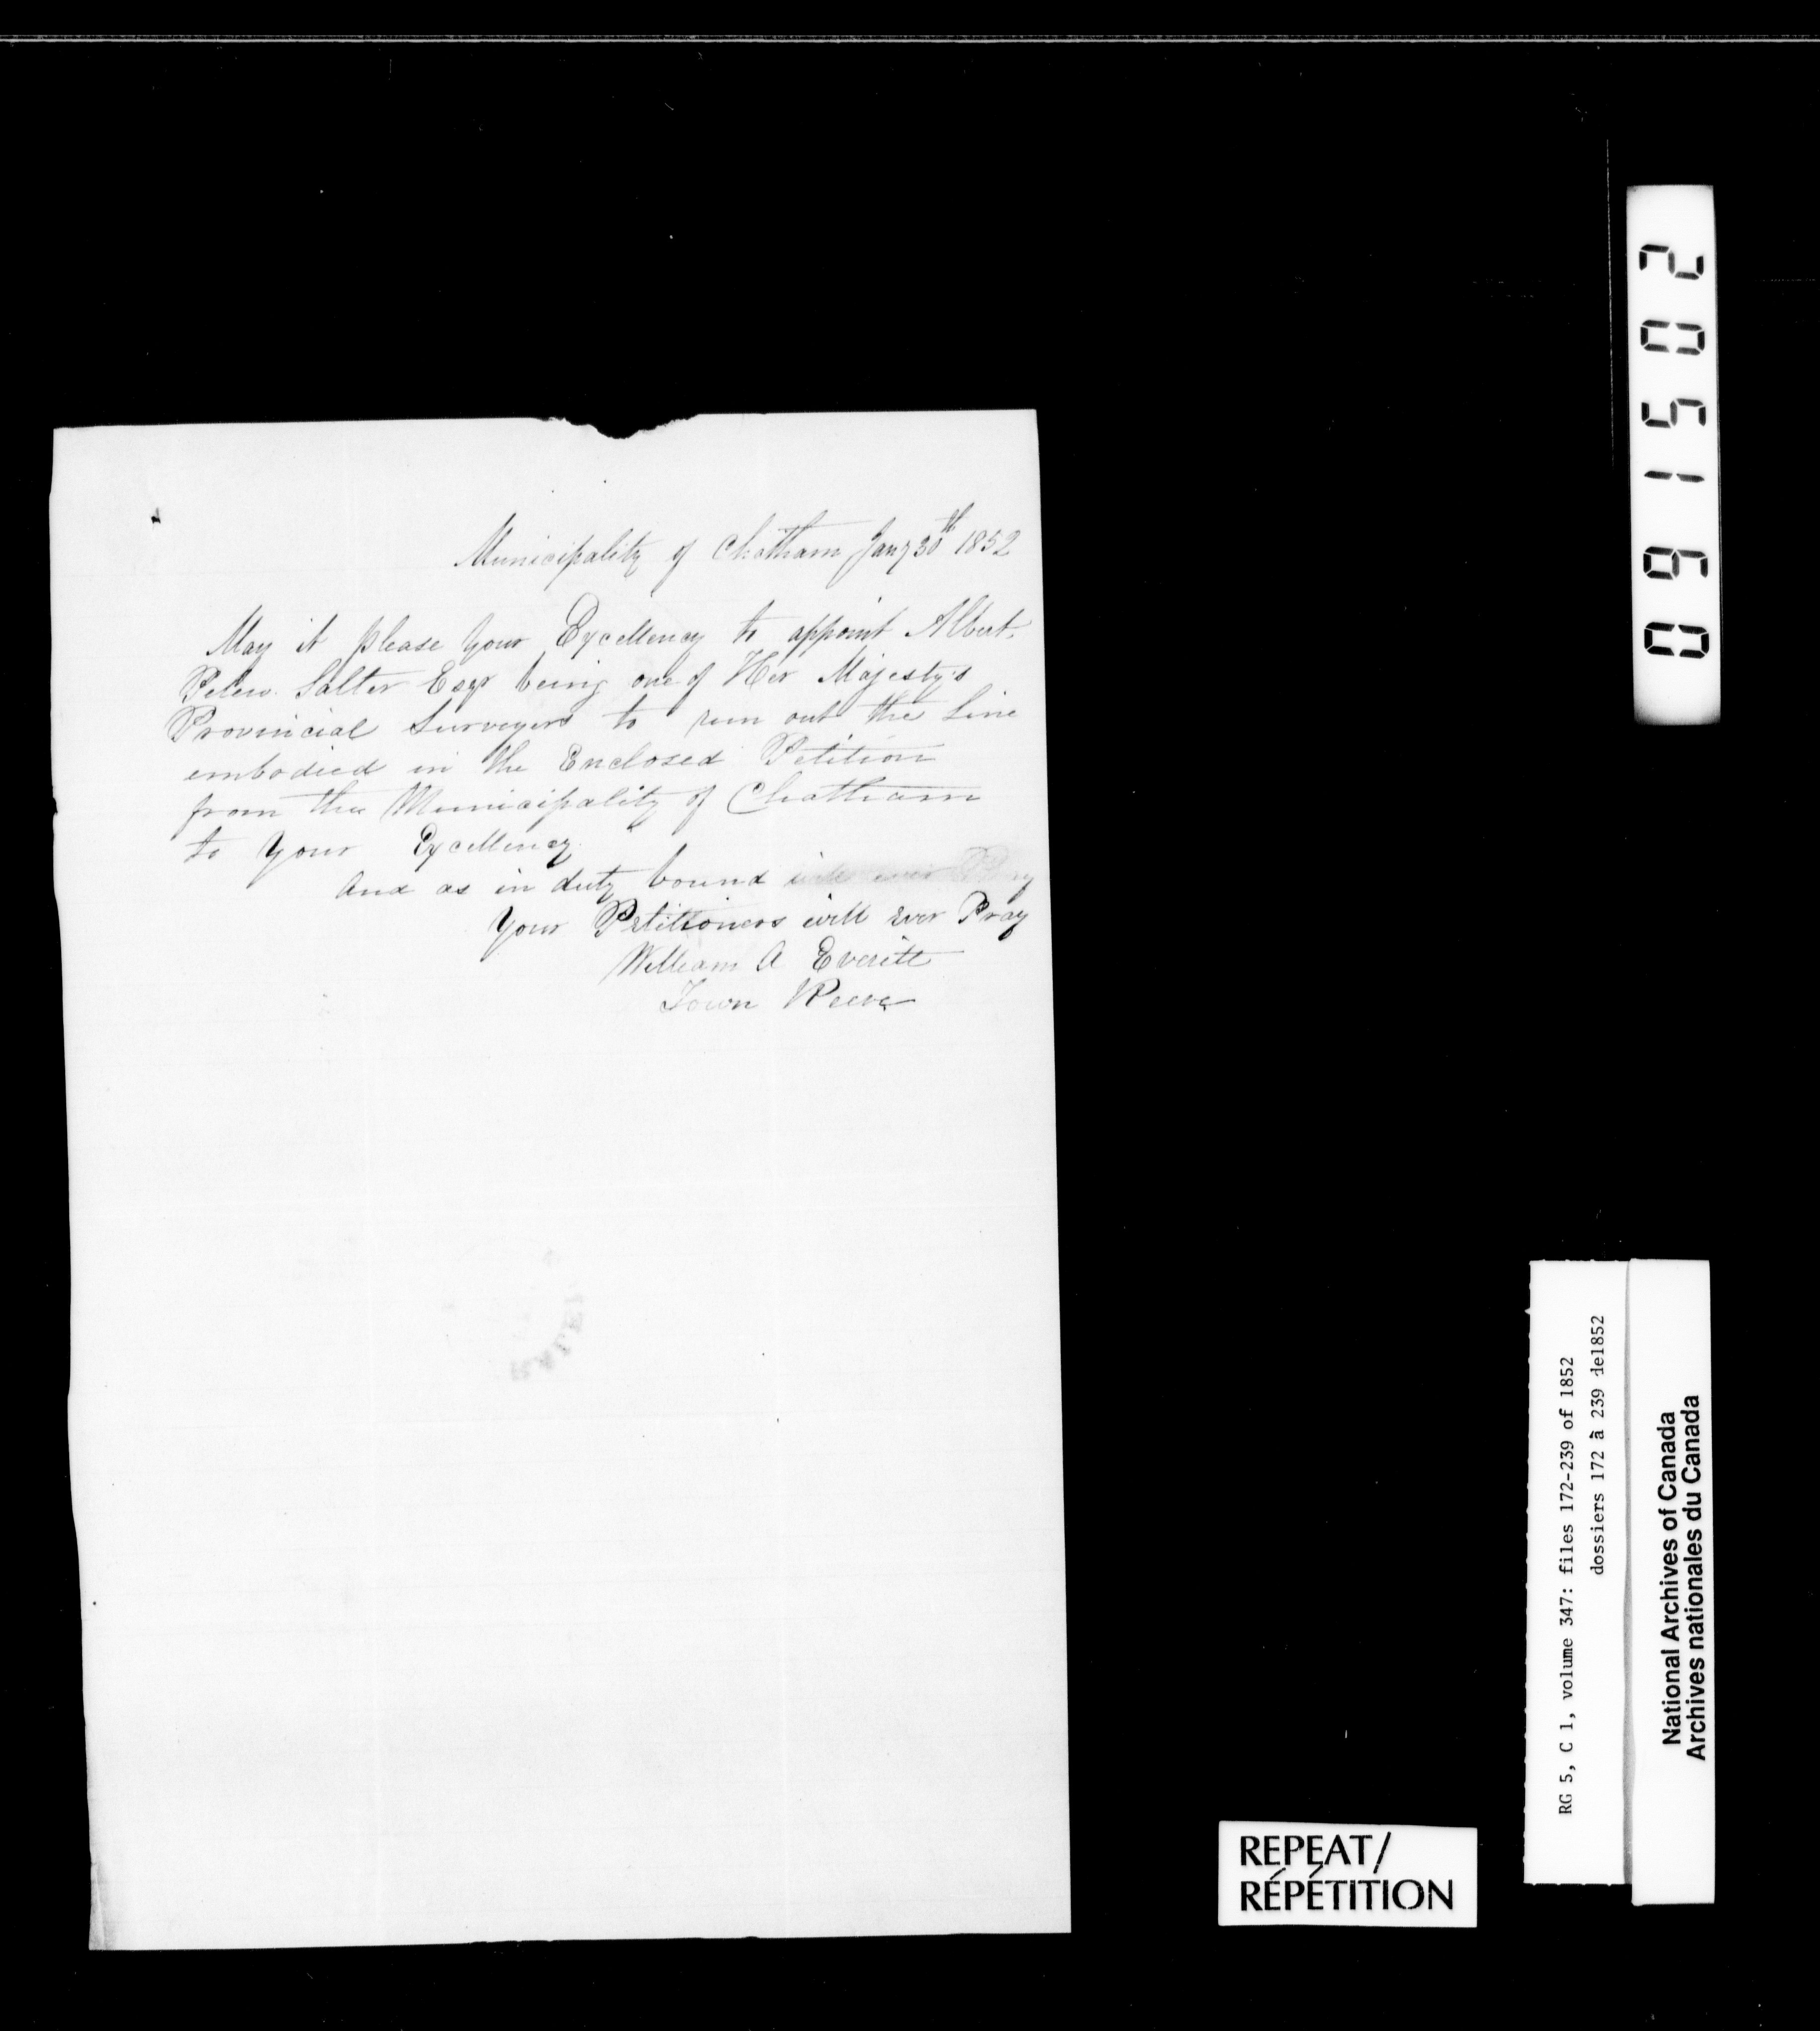 Municipality of Chatham Jany 30th 1852
May it please your Excellency to appoint Albert
Pelew Salter Esqr being one of Her Majesty's
Provincial Surveyors to run out the Line
embodied in the Enclosed Petition
from the Municipality of Chatham
to your Excellency
And as in duty bound will ever Pray
Your Petitioners will ever Pray
William A Everitt
Town Reeve
091502
RG 5, C 1, volume 347: files 172-239 of 1852
dossiers 172 à 239 de1852
National Archives of Canada
Archives nationales du Canada
REPEAT/
RÉPÉTITION